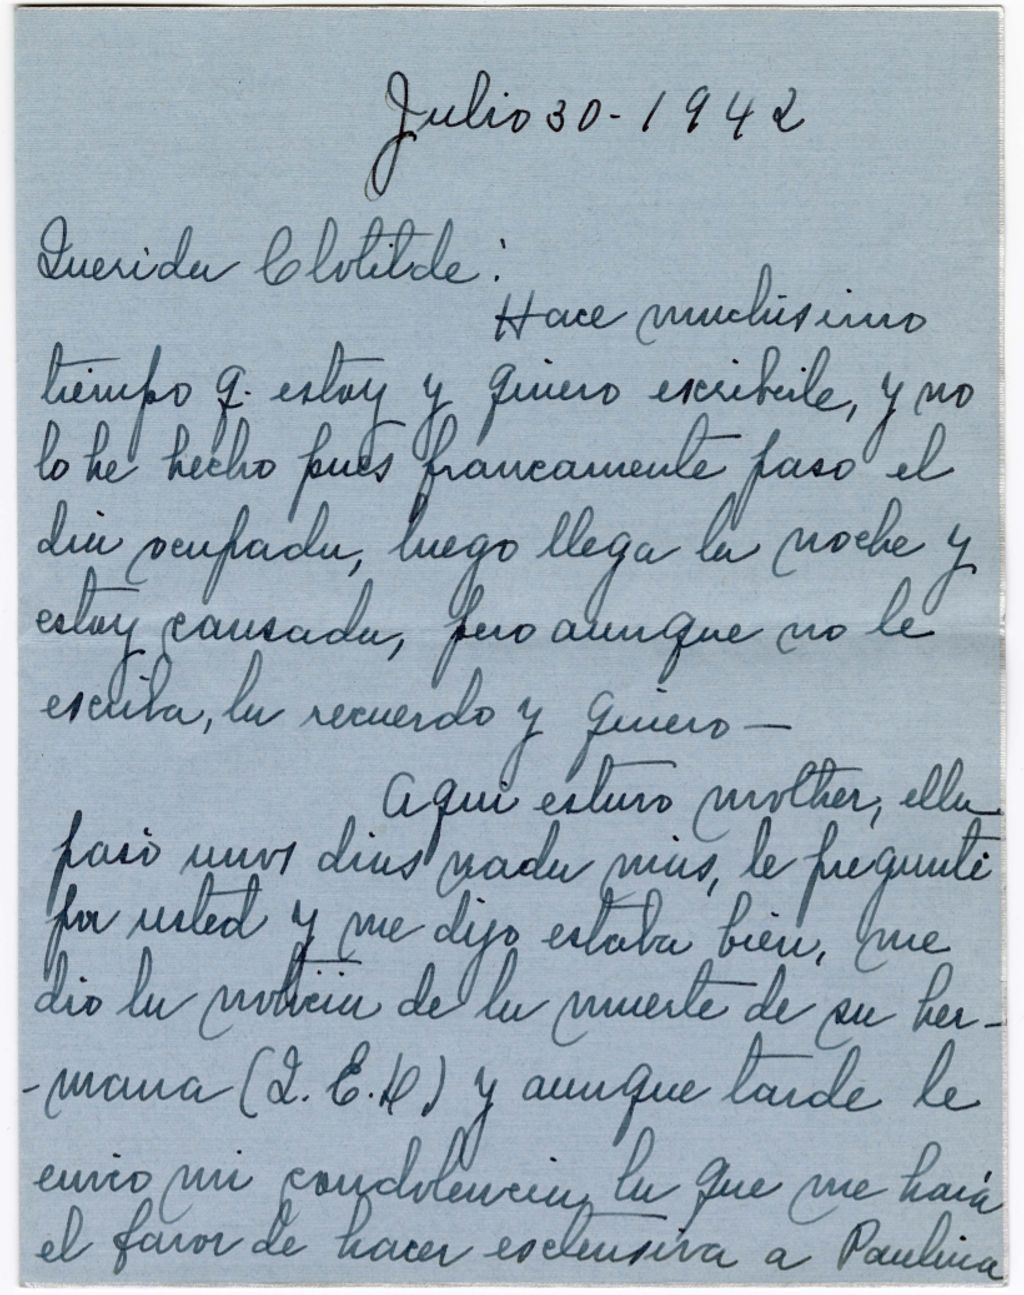 Julio 30-1942
Querida Clotilde:
Hace muchisimo
tiempo q. estoy y quiero escribirle, y no
lo he hecho pués francamente paso el
dia ocupada, luego llega la noche y
estoy cansada, pero aunque no le
escriba, la recuerdo y quiero—
Aqui estuvo mother, ella
pasó unos dias nada mas, le pregunté
por usted y me dijo estaba bien, me
dio la noticia de la muerte de su her-
-mana (Q.E.D) y aunque tarde le
envio mi condolencia, la que me hará
el favor de hacer extensiva a Paulina